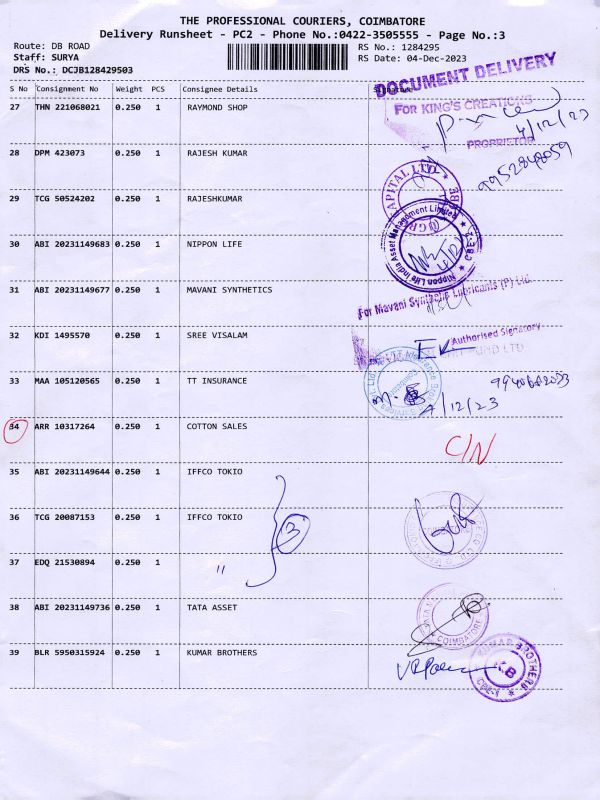 THE PROFESSIONAL COURIERS, COIMBATORE
Delivery Runsheet - PC2 - Phone No.:0422-3505555 - Page No.:3
Route: DB ROAD
RS No.: 1284295
Staff: SURYA
RS Date: 04-Dec-2023
DRS No.: DCJB128429503
DOCUMENT DELIVERY
S No Consignment No Weight PCS Consignee Details
27 THN 221068021 0.250 1 RAYMOND SHOP
For KING'S CREATIONS
4/12/23
PROPRIETOR
28 DPM 423073 0.250 1 RAJESH KUMAR
29 TCG 50524202 0.250 1 RAJESHKUMAR
CAPITAL LTD.
30 ABI 20231149683 0.250 1 NIPPON LIFE
Nippon Life India Asset Management Limited
CBE-2
31 ABI 20231149677 0.250 1 MAVANI SYNTHETICS
For Mavani Synthetic Lubricants (P) Ltd.
32 KDI 1495570 0.250 1 SREE VISALAM
Authorised Signatory
33 MAA 105120565 0.250 1 TT INSURANCE
4/12/23
34 ARR 10317264 0.250 1 COTTON SALES
C/N
35 ABI 20231149644 0.250 1 IFFCO TOKIO
36 TCG 20087153 0.250 1 IFFCO TOKIO
3
37 EDQ 21530894 0.250 1 "
38 ABI 20231149736 0.250 1 TATA ASSET
COIMBATORE
39 BLR 5950315924 0.250 1 KUMAR BROTHERS
KUMAR BROTHERS
K.B
CBE-1